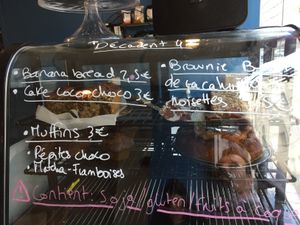 Décadent
• Banana bread 2,5€
• Cake coco-choco 3€
• Muffins 3€
• Pépites choco
• Matcha-Framboises
• Brownie B
de cacahu
noisettes
5€
⚠ Contient: soja/gluten/fruits à coq